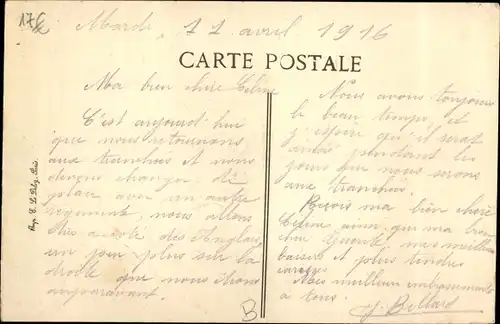 Mardi, 11 avril 1916
CARTE POSTALE
Ma bien chère Céline
C'est aujourd'hui
que nous retournons
aux tranchées et nous
devons changer de
place avec un autre
régiment, nous allons
être à côté des Anglais
un peu plus sur la
droite que nous étions
auparavant.
Nous avons toujours
le beau temps, et
j'espère qu'il serat
pendant les
jours que nous serons
aux tranchées.
Reçois ma bien chère
Céline, ainsi que ma bien
chère mes meilleurs
baisers et plus tendres
caresses
Mes meilleurs embrassements
à tous.
J. Billard
B